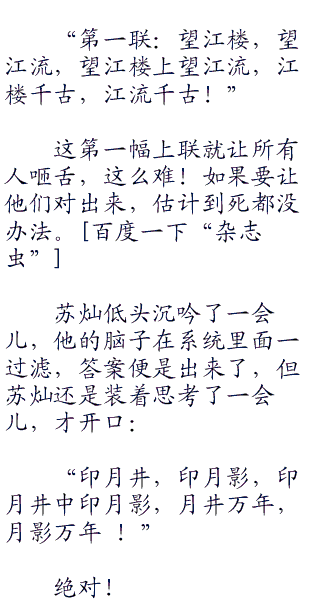 “第一联：望江楼，望
江流，望江楼上望江流，江
楼千古，江流千古！”
这第一幅上联就让所有
人咂舌，这么难！如果要让
他们对出来，估计到死都没
办法。[百度一下“杂志
虫”]
苏灿低头沉吟了一会
儿，他的脑子在系统里面一
过滤，答案便是出来了，但
苏灿还是装着思考了一会
儿，才开口：
“印月井，印月影，印
月井中印月影，月井万年，
月影万年 ！”
绝对！